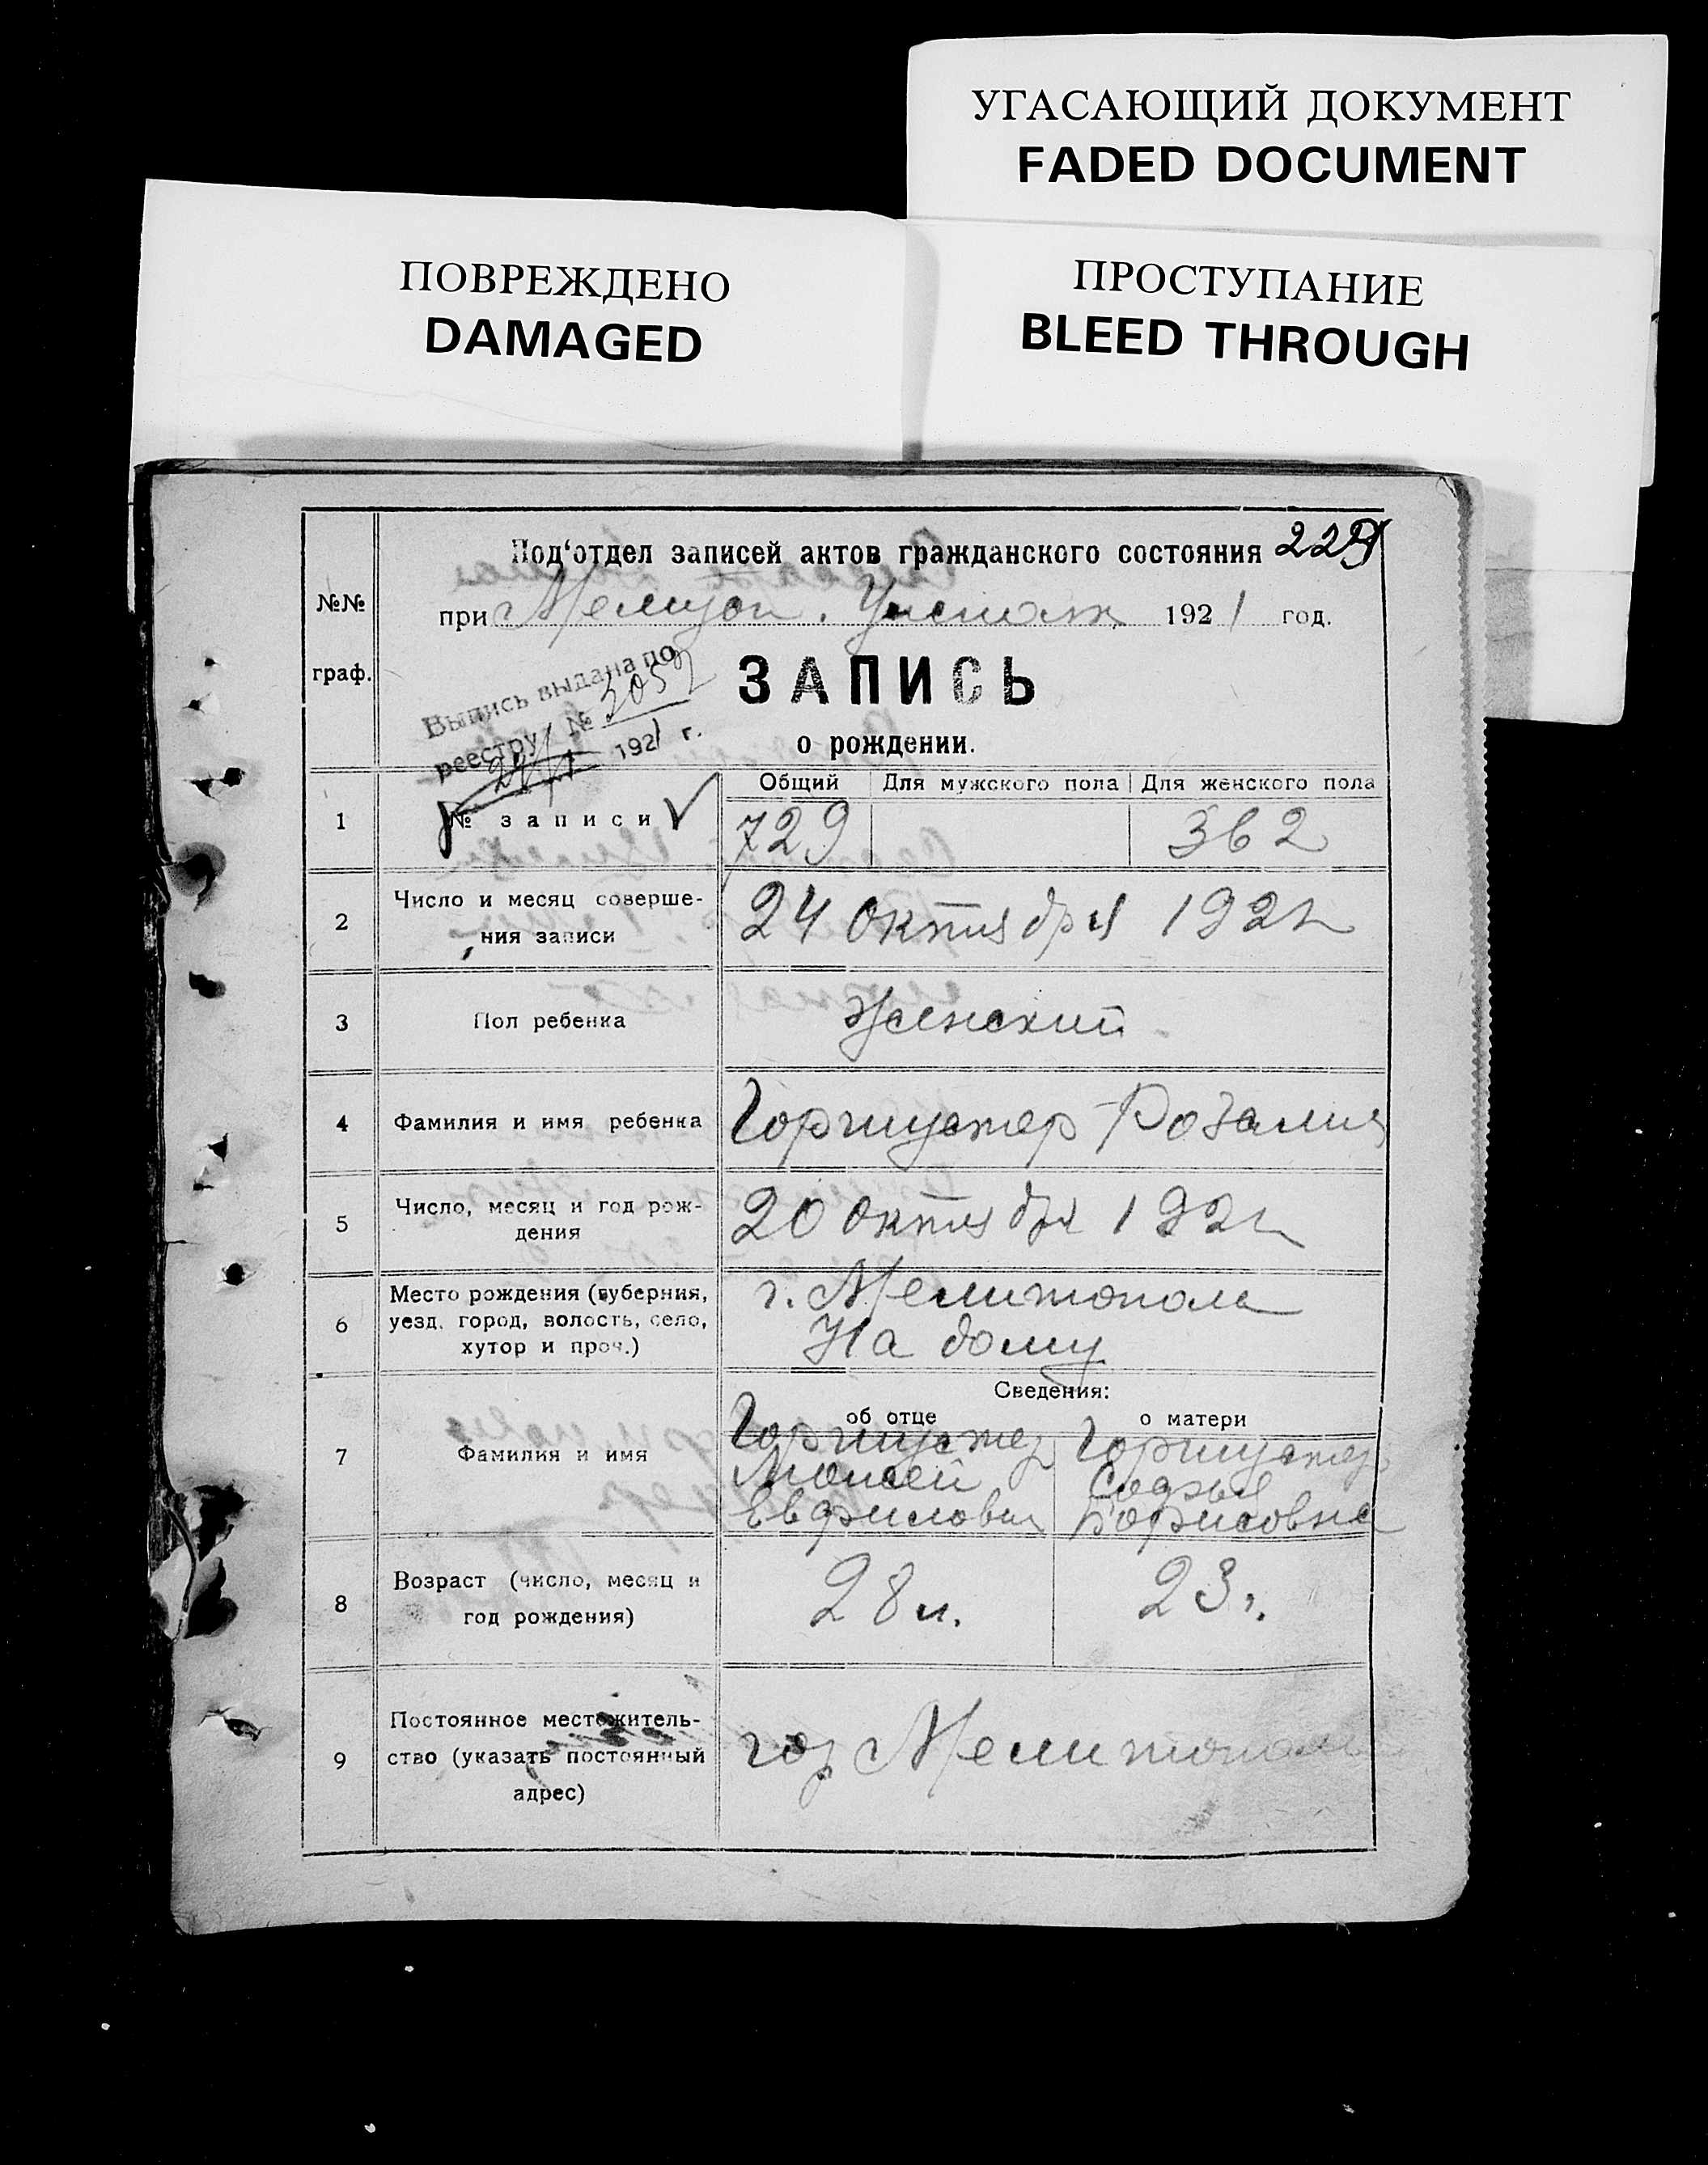 УГАСАЮЩИЙ ДОКУМЕНТ
FADED DOCUMENT
ПОВРЕЖДЕНО
DAMAGED
ПРОСТУПАНИЕ
BLEED THROUGH
Под‘отдел записей актов гражданского состояния
№№
граф.
при 1921 год.
Выпись выдана по
реестру №
1921 г.
ЗАПИСЬ
о рождении.
Общий Для мужского пола Для женского пола
1 № записи 729 362
2 Число и месяц соверше-
ния записи
24 октября 1921
3 Пол ребенка Женский
4 Фамилия и имя ребенка Горшустер Розалия
5 Число, месяц и год рож-
дения
20 октября 1921
6 Место рождения (губерния,
уезд. город, волость, село,
хутор и проч.)
г. Мелитополь
На дому
Сведения:
об отце о матери
7 Фамилия и имя
Горшустер Горшустер
Моисей Софья
Борисовна
8 Возраст (число, месяц и
год рождения)
28 л. 23 г.
9 Постоянное местожитель-
ство (указать постоянный
адрес)
гор Мелитополь